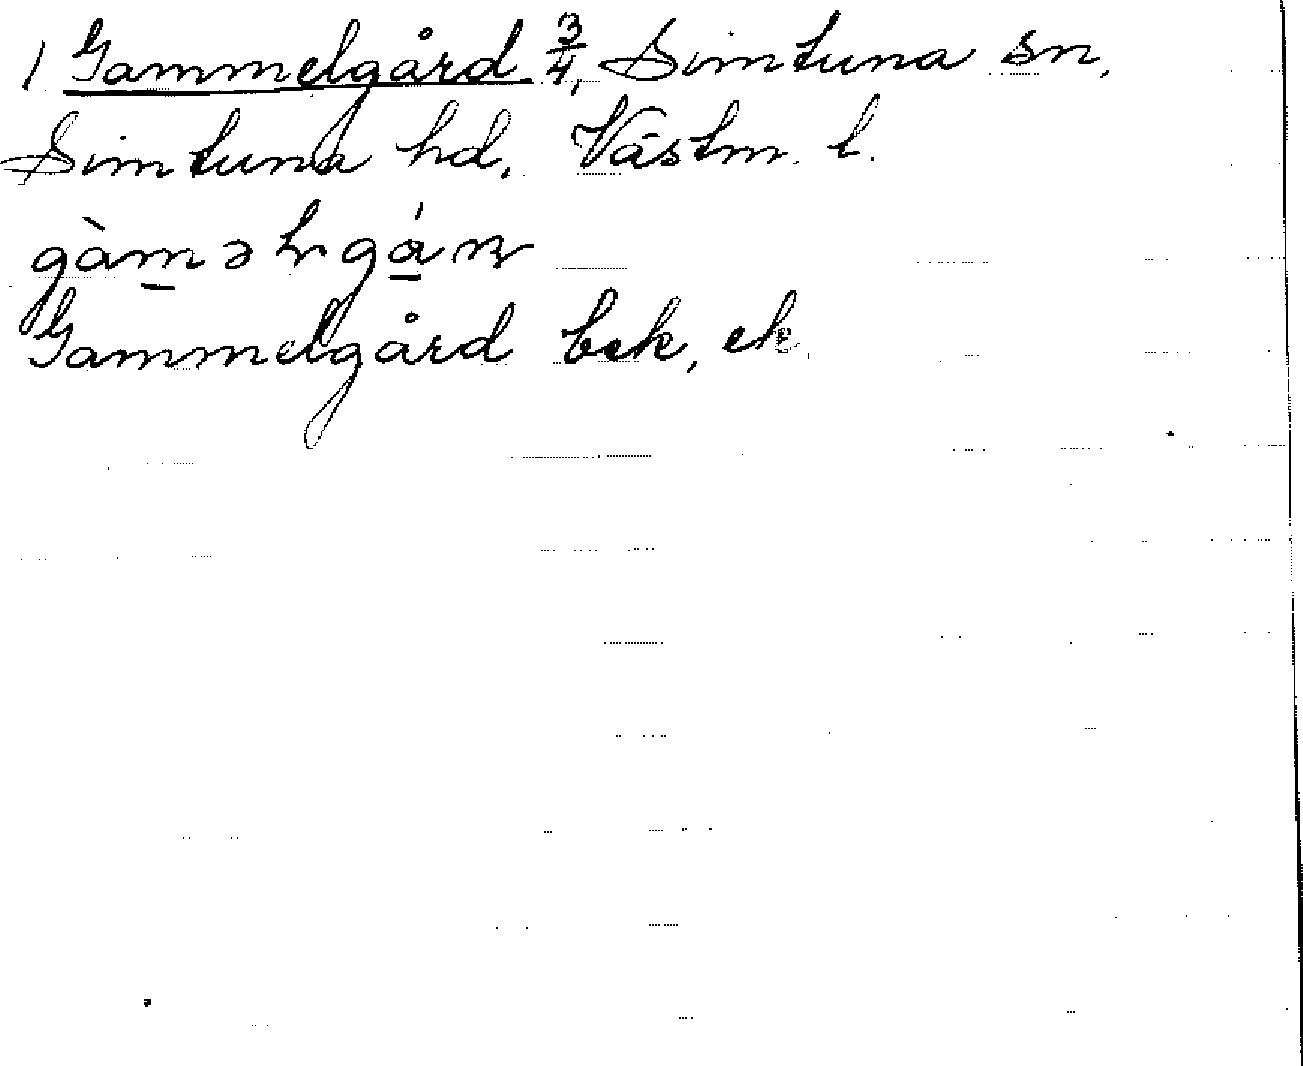 1 Gammelgård 3/4, Simtuna sn,
Simtuna hd, Västm. l.
Gammelgård bek, ek